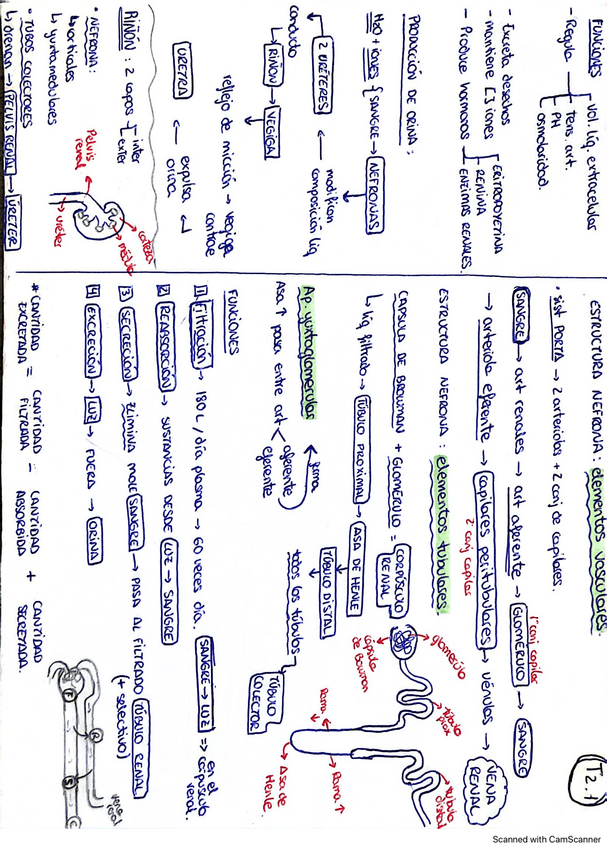 T2.1
FUNCIONES
- Regula
vol. líq. extracelular
tens. art.
PH
osmolaridad.
- Excreta desechos
- mantiene [] iones
- Produce hormonas
ERITROPOYETINA
RENINA
ENZIMAS RENALES.
PRODUCCIÓN DE ORINA:
H2O + iones { SANGRE → NEFRONAS
modifican
composición líq
2 URÉTERES
conducto
↳ RIÑÓN → VEGIGA
reflejo de micción → vegiga
contrae
expulsa
orina
URETRA
RIÑÓN: 2 capas
inter
exter
• NEFRONA:
↳ corticales
↳ yuxtamedulares
• TUBOS COLECTORES
↳ drenan → PELVIS RENAL → URETER
Pelvis
renal
corteza
médula
uréter
ESTRUCTURA NEFRONA: elementos vasculares
• sist PORTA → 2 arteriolas + 2 conj de capilares.
1er conj capilar
SANGRE → art renales → art aferente → GLOMÉRULO → SANGRE
→ arteriola eferente → capilares peritubulares → vénulas → VENA
RENAL
2º conj capilar
ESTRUCTURA NEFRONA: elementos tubulares.
CAPSULA DE BOWMAN + GLOMÉRULO = CORPÚSCULO
RENAL
↳ líq filtrado → TÚBULO PROXIMAL → ASA DE HENLE
TÚBULO DISTAL
todos los túbulos
TÚBULO
COLECTOR
glomérulo
cápsula
de Bowman
túbulo
prox
túbulo
distal
Rama ↓
Rama ↑
Asa de
Henle.
Ap. yuxtaglomerular
Asa ↑ pasa entre art
aferente
eferente
FUNCIONES
1 Filtración → 180L / día plasma → 60 veces día. SANGRE → LUZ ⇒ en el
corpúsculo
renal.
2 REABSORCIÓN → SUSTANCIAS DESDE LUZ → SANGRE
3 SECRECIÓN → Elimina molc SANGRE → PASA AL FILTRADO TÚBULO RENAL
(+ selectivo)
4 EXCRECIÓN → LUZ → FUERA → ORINA
* CANTIDAD EXCRETADA = CANTIDAD FILTRADA - CANTIDAD ABSORBIDA + CANTIDAD SECRETADA.
F
R
S
Scanned with CamScanner